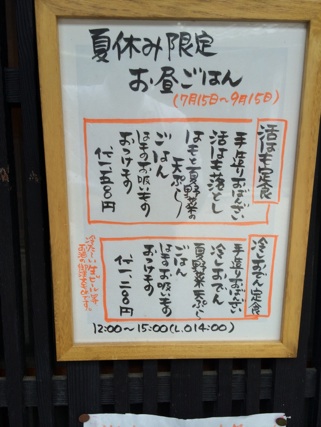 夏休み限定
お昼ごはん
(7月15日~9月15日)
活はも定食
手造りおばんざい
活はも落とし
はもと夏野菜の
天ぷら
ごはん
はものお吸いもの
おつけもの
冷しおでん定食
手造りおばんざい
冷しおでん
夏野菜天ぷら
ごはん
はものお吸いもの
おつけもの
12:00~15:00(L.O14:00)